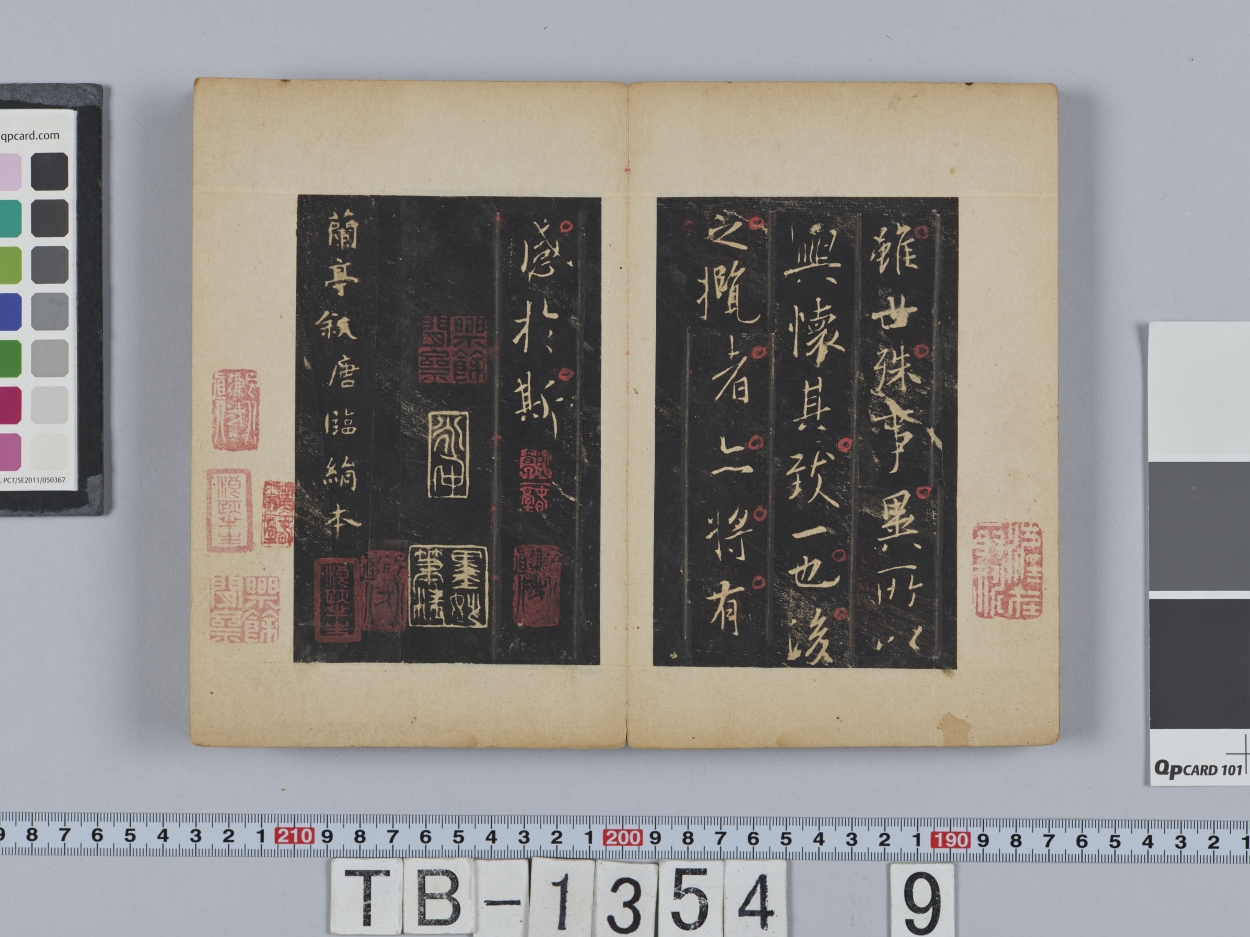 雖世殊事異所以
興懷其致一也後
之攬者亦將有
感於斯
蘭亭敘唐臨絹本
qpcard.com
PCT/SE2011/050367
QPCARD 101
9 8 7 6 5 4 3 2 1 210 9 8 7 6 5 4 3 2 1 200 9 8 7 6 5 4 3 2 1 190 9 8 7 6 5 4 3 2 1
TB-1354 9